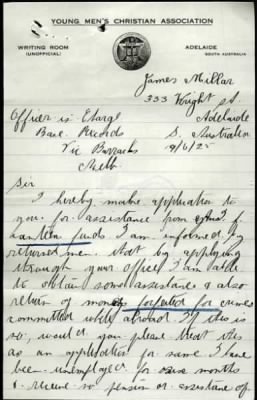 YOUNG MEN'S CHRISTIAN ASSOCIATION
WRITING ROOM
(UNOFFICIAL)
ADELAIDE
SOUTH AUSTRALIA
James Millar
333 Wright st
Adelaide
Officer i/c Charge
Base Records
S. Australia
Vic Barracks
9/6/25
Melb
Sir
I hereby make application to
you for assistance from
Canteen funds I am informed by
returned men that by applying
through your office I am able
to obtain some assistance & also
return of money forfeited for crimes
committed while abroad If this is
so, would you please treat this
as an application for same I have
been unemployed for some months
& receive no pension or assistance of